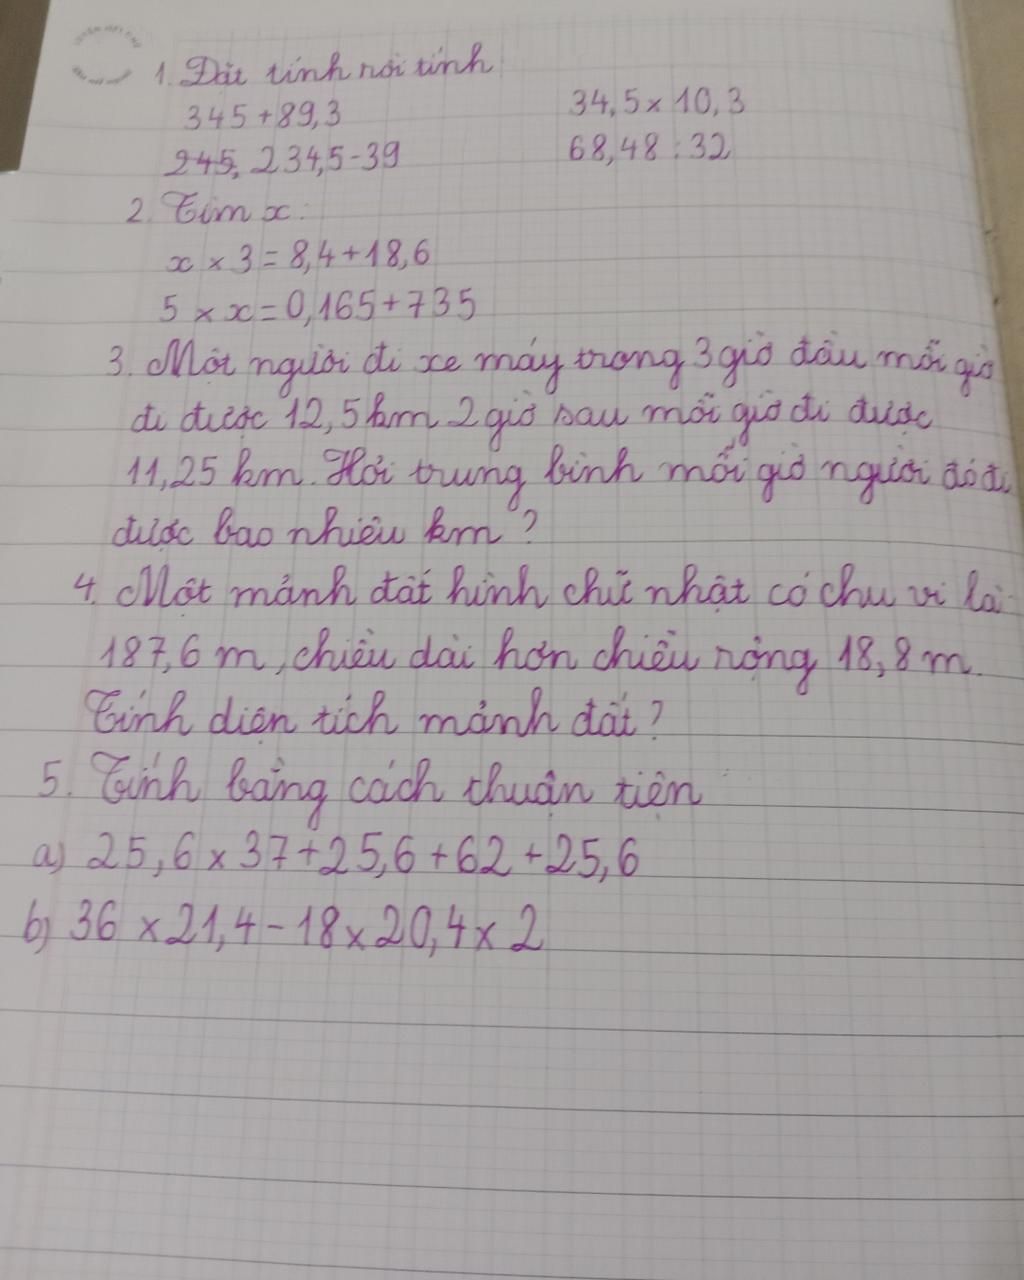 1. Đặt tính rồi tính
345 + 89,3 34,5 x 10,3
245, 234,5 - 39 68,48 : 32
2. Tìm x:
x x 3 = 8,4 + 18,6
5 x x = 0,165 + 735
3. Một người đi xe máy trong 3 giờ đầu mỗi giờ
đi được 12,5 km 2 giờ sau mỗi giờ đi được
11,25 km. Hỏi trung bình mỗi giờ người đó đi
được bao nhiêu km ?
4. Một mảnh đất hình chữ nhật có chu vi là
187,6 m, chiều dài hơn chiều rộng 18,8 m.
Tính diện tích mảnh đất ?
5. Tính bằng cách thuận tiện
a) 25,6 x 37 + 25,6 + 62 + 25,6
b) 36 x 21,4 - 18 x 20,4 x 2